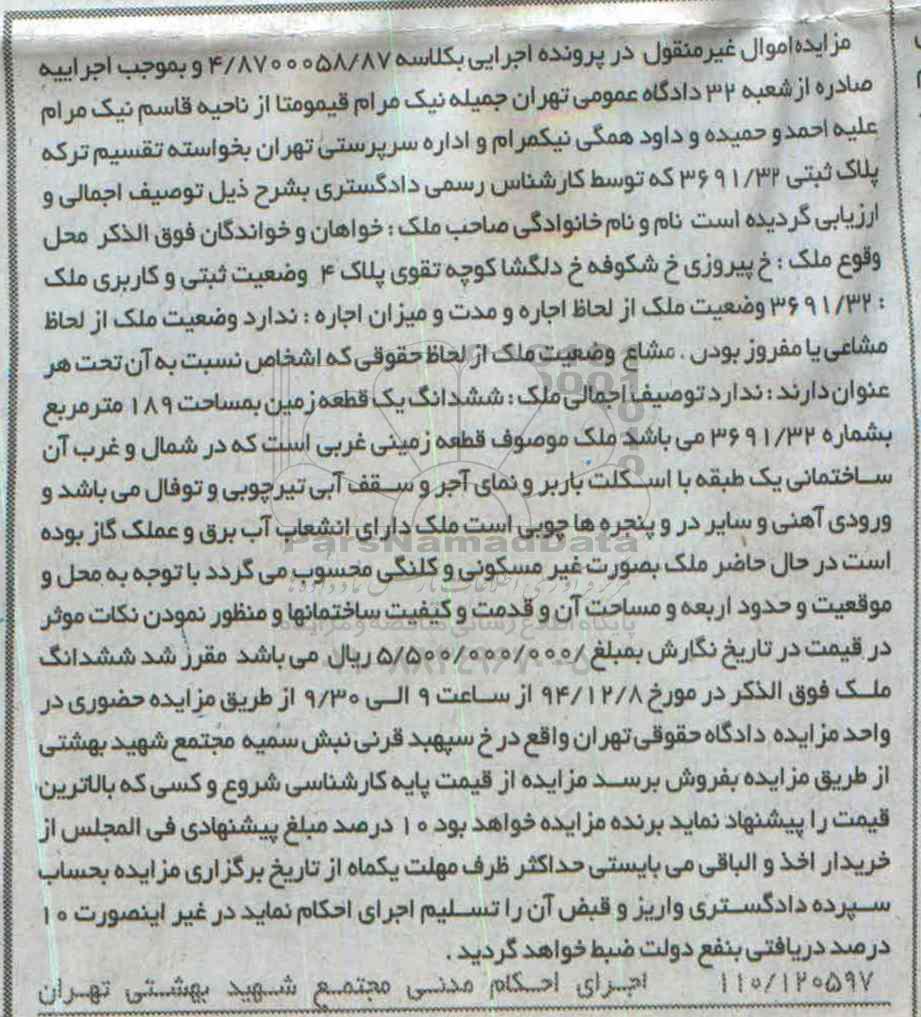 مزایده اموال غیرمنقول در پرونده اجرایی بکلاسه ۴/۸۷۰۰۰۵۸/۸۷ و بموجب اجراییه
صادره از شعبه ۳۲ دادگاه عمومی تهران جمیله نیک مرام قیمومتا از ناحیه قاسم نیک مرام
علیه احمد و حمیده و داود همگی نیکمرام و اداره سرپرستی تهران بخواسته تقسیم ترکه
پلاک ثبتی ۳۶۹۱/۳۲ که توسط کارشناس رسمی دادگستری بشرح ذیل توصیف اجمالی و
ارزیابی گردیده است نام و نام خانوادگی صاحب ملک : خواهان و خواندگان فوق الذکر محل
وقوع ملک : خ پیروزی خ شکوفه خ دلگشا کوچه تقوی پلاک ۴ وضعیت ثبتی و کاربری ملک
: ۳۶۹۱/۳۲ وضعیت ملک از لحاظ اجاره و مدت و میزان اجاره : ندارد وضعیت ملک از لحاظ
مشاعی یا مفروز بودن . مشاع وضعیت ملک از لحاظ حقوقی که اشخاص نسبت به آن تحت هر
عنوان دارند : ندارد توصیف اجمالی ملک : ششدانگ یک قطعه زمین بمساحت ۱۸۹ مترمربع
بشماره ۳۶۹۱/۳۲ می باشد ملک موصوف قطعه زمینی غربی است که در شمال و غرب آن
ساختمانی یک طبقه با اسکلت باربر و نمای آجر و سقف آبی تیرچوبی و توفال می باشد و
ورودی آهنی و سایر در و پنجره ها چوبی است ملک دارای انشعاب آب برق و عملک گاز بوده
است در حال حاضر ملک بصورت غیر مسکونی و کلنگی محسوب می گردد با توجه به محل و
موقعیت و حدود اربعه و مساحت آن و قدمت و کیفیت ساختمانها و منظور نمودن نکات موثر
در قیمت در تاریخ نگارش بمبلغ ۵/۵۰۰/۰۰۰/۰۰۰/ ریال می باشد مقرر شد ششدانگ
ملک فوق الذکر در مورخ ۹۴/۱۲/۸ از ساعت ۹ الی ۹/۳۰ از طریق مزایده حضوری در
واحد مزایده دادگاه حقوقی تهران واقع در خ سپهبد قرنی نبش سمیه مجتمع شهید بهشتی
از طریق مزایده بفروش برسد مزایده از قیمت پایه کارشناسی شروع و کسی که بالاترین
قیمت را پیشنهاد نماید برنده مزایده خواهد بود ۱۰ درصد مبلغ پیشنهادی فی المجلس از
خریدار اخذ و الباقی می بایستی حداکثر ظرف مهلت یکماه از تاریخ برگزاری مزایده بحساب
سپرده دادگستری واریز و قبض آن را تسلیم اجرای احکام نماید در غیر اینصورت ۱۰
درصد دریافتی بنفع دولت ضبط خواهد گردید .
۱۱۰/۱۲۰۵۹۷ اجرای احکام مدنی مجتمع شهید بهشتی تهران
ParsNamadData